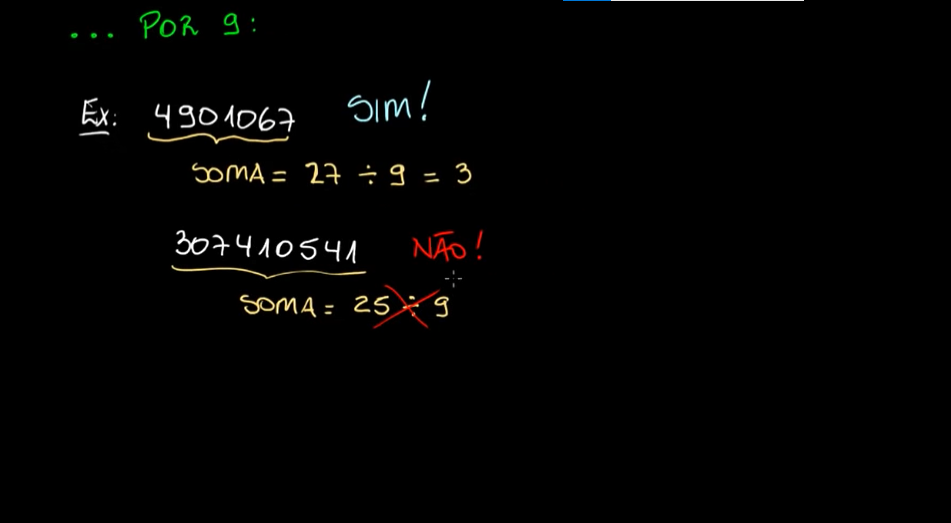 ... POR 9:
Ex: 4901067 SIM!
SOMA = 27 ÷ 9 = 3
307410541 NÃO!
SOMA = 25 ÷ 9